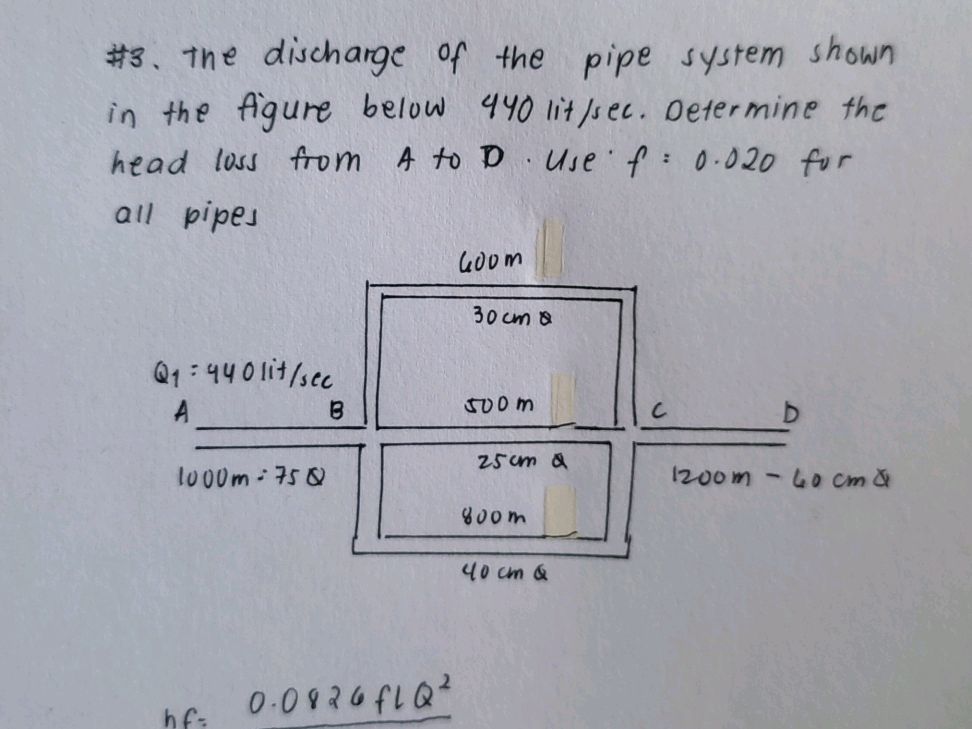 #3. The discharge of the pipe system shown
in the figure below 440 lit/sec. Determine the
head loss from A to D. Use f = 0.020 for
all pipes
600m
30 cm Ø
Q1 = 440 lit/sec
A B 500m C D
25 cm Ø
1000m = 75 Ø 1200m - 60 cm Ø
800m
40 cm Ø
hf = 0.0826 f L Q²